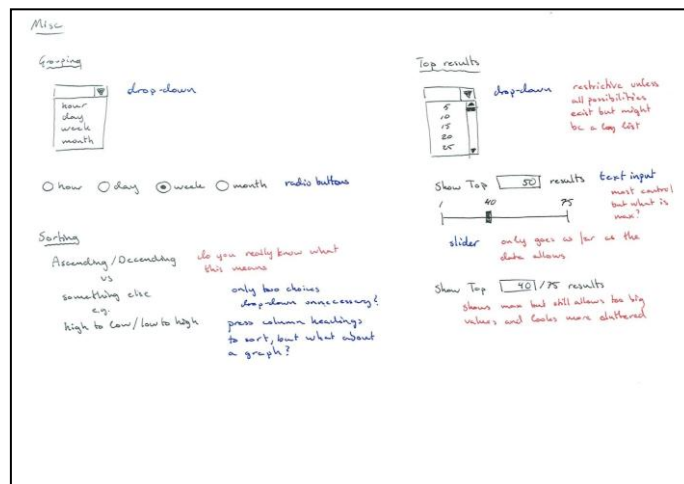 Misc
Grouping
drop-down
hour
day
week
month
hour day week month radio buttons
Sorting
Ascending / Decending
vs
something else
e.g.
high to low / low to high
do you really know what
this means
only two choices
drop-down unnecessary?
press column headings
to sort, but what about
a graph?
Top results
drop-down
5
10
15
20
25
restrictive unless
all possibilities
exist but might
be a long list
Show Top 50 results
text input
most control
but what is
max?
1 40 75
slider
only goes as far as the
data allows
Show Top 40 / 75 results
shows max but still allows too big
values and looks more cluttered